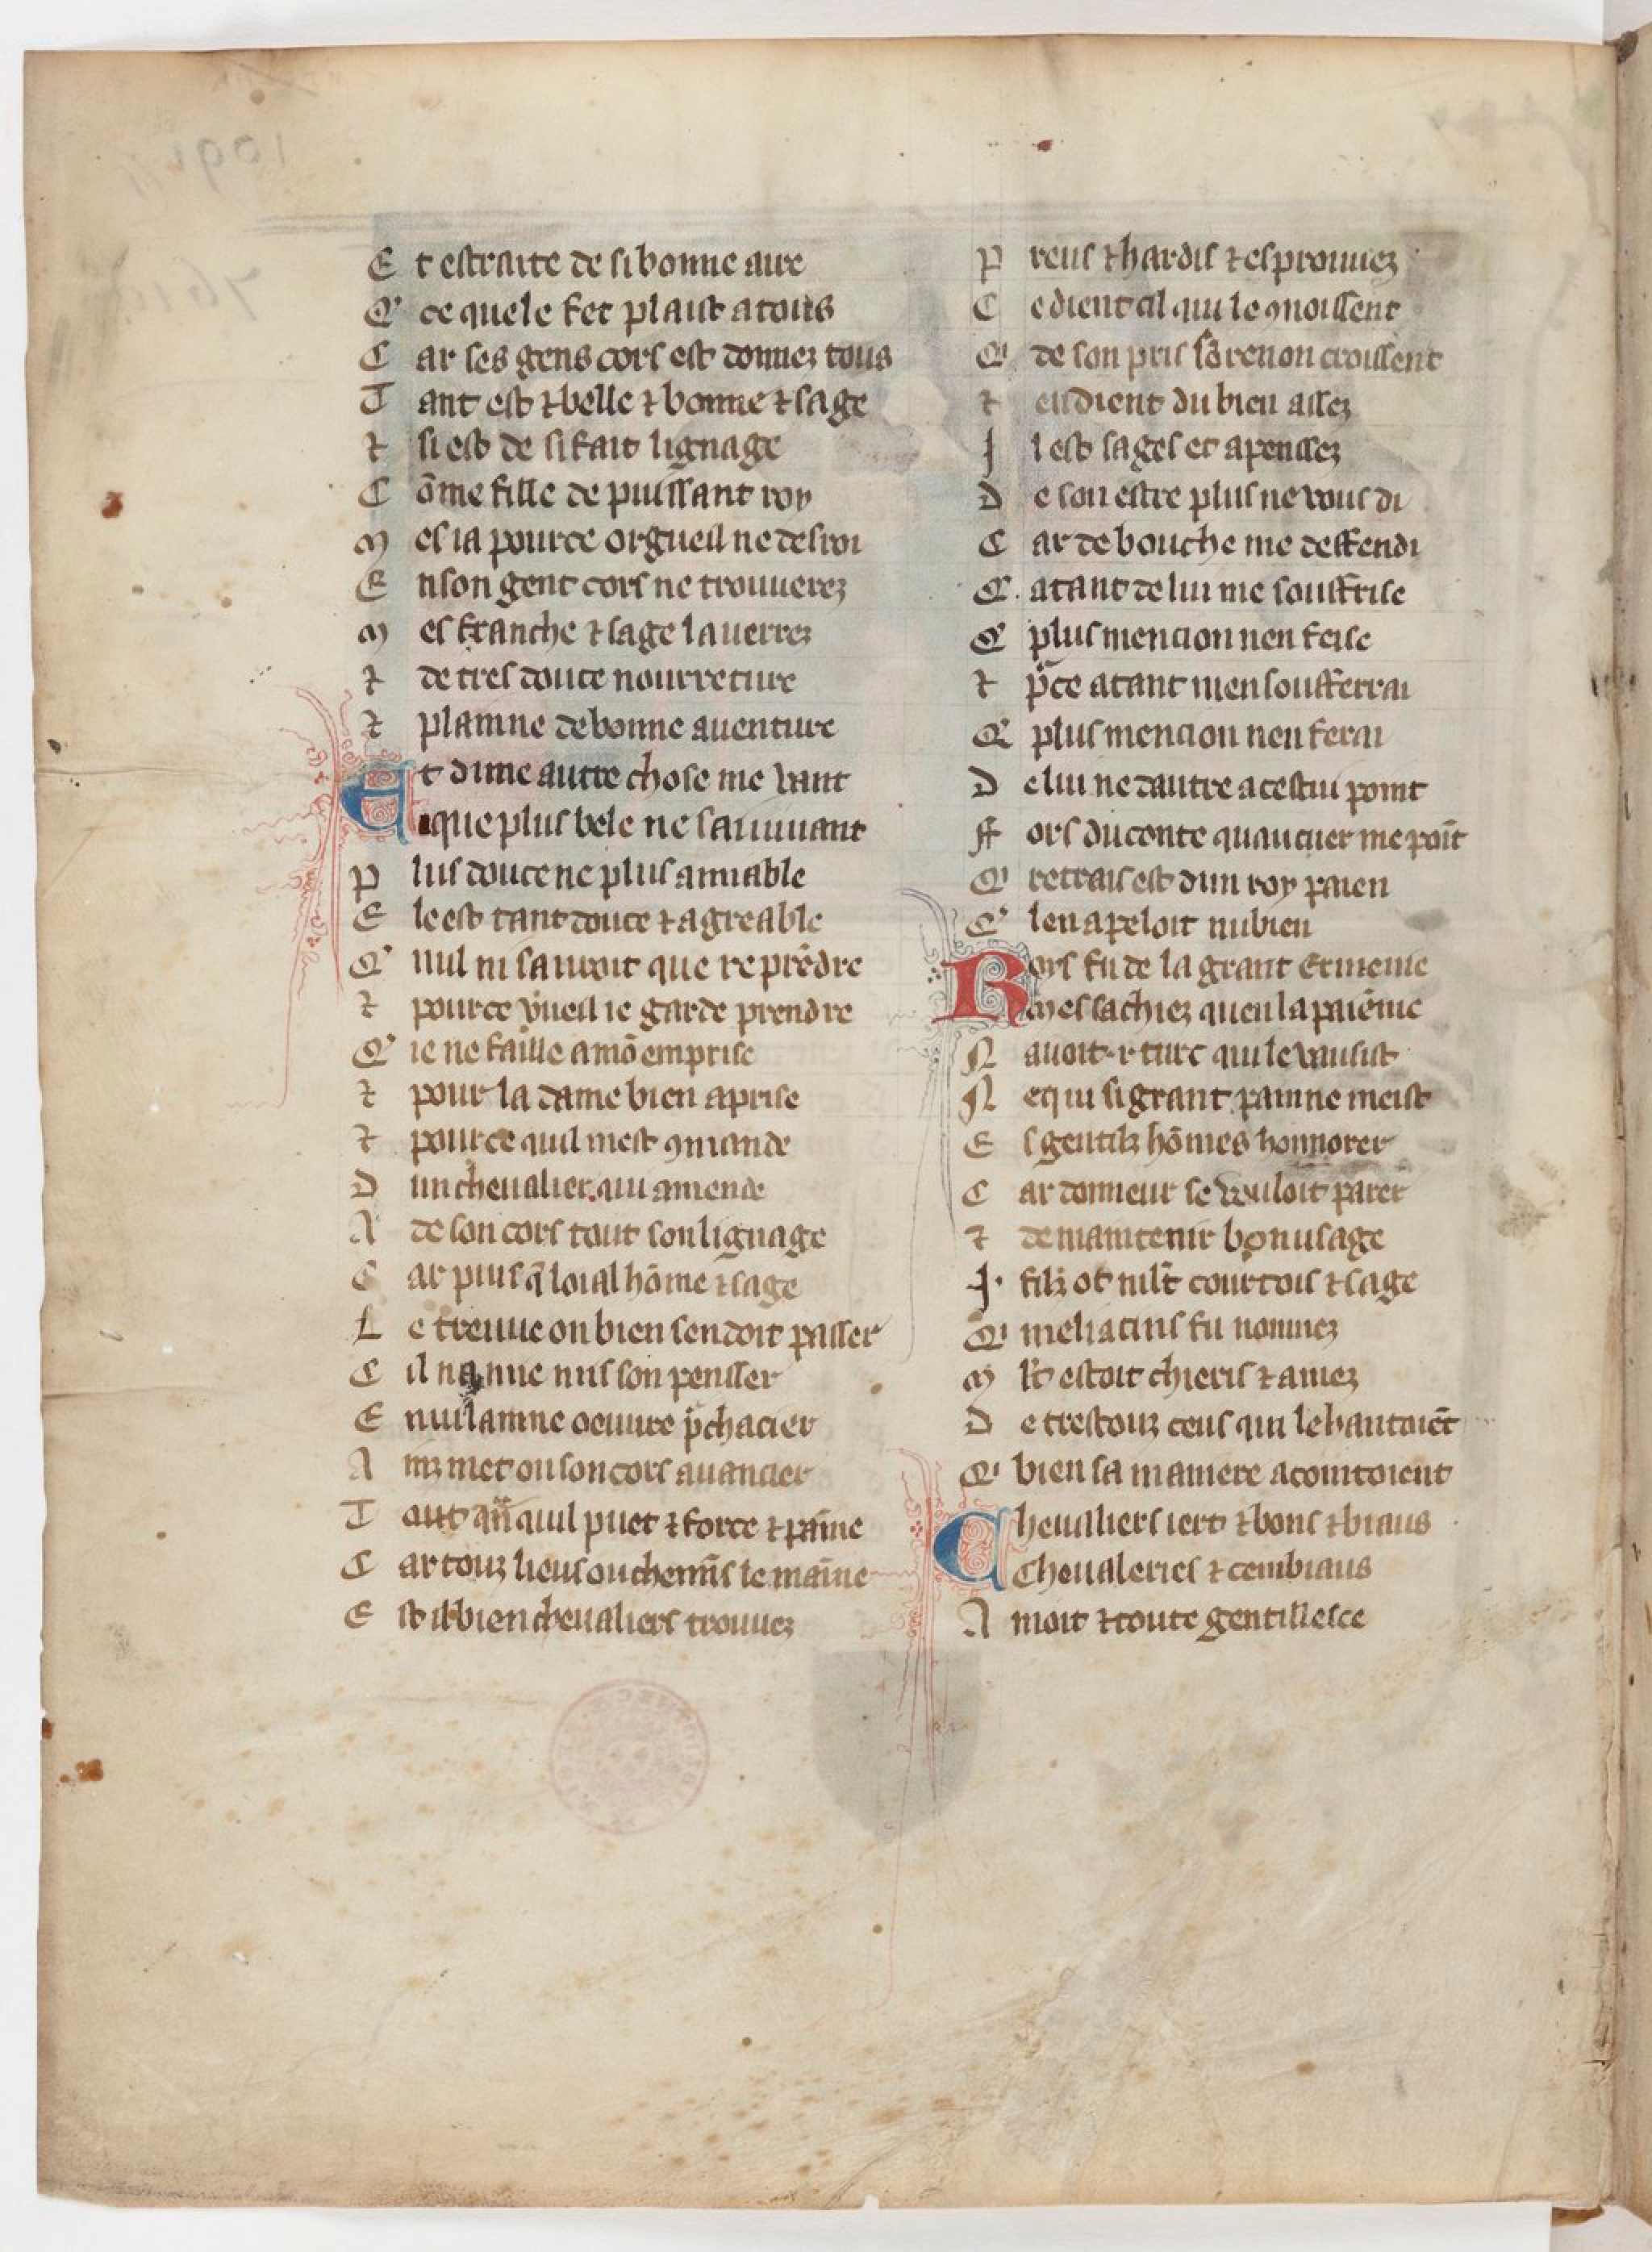 E t estraite de si bonne aire
Q' ce quele fet plaist a tous
C ar ses gens cors est donnez tous
T ant est ⁊ belle ⁊ bonne ⁊ sage
⁊ si est de si fait lignage
C õme fille de puissant roy
M es ia pource orgueil ne desroi
E n son gent cors ne trouuerez
M es franche ⁊ sage la uerrez
⁊ de tres douce nourreture
⁊ plainne de bonne auenture
Et dune autre chose me vant
que plus bele ne sai uiuant
P lus douce ne plus amiable
E le est tant douce ⁊ agreable
Q' nul ni sauroit que reprẽdre
⁊ pource vueil ie garde prendre
Q' ie ne faille a mõ emprise
⁊ pour la dame bien aprise
⁊ pource quil mest 9mande
D un cheualier qui amende
A de son cors tout son lignage
C ar puis q̃ loial hõme ⁊ sage
L e treuue on bien sen doit passer
C il na mie mis son pensser
E n uilainne oeuure p̃chacier
A inz met ou son cors auancier
T out quil puet ⁊ force ⁊ paĩne
C ar touz lieus ou chemĩs le maĩne
E st il bien cheualiers trouuez
P reus ⁊ hardis ⁊ esprouuez
C e dient cil qui le 9noissent
Q' de son pris sõ renon croissent
⁊ en dient du bien assez
J l est sages et apenssez
D e son estre plus ne vous di
C ar de bouche me deffendi
Q' atant de lui me souffrise
Q' plus mencion nen feise
⁊ p̃ce atant men soufferrai
Q' plus mencion nen ferai
D e lui ne dautre a cestui point
ff ors du conte quau cuer me poĩt
Q' retrais est dun roy paien
Q' len apeloit nubien
Roys fu de la grant ermenie
Mes sachiez quen la paiẽnie
N auoit .i. turc qui le vausist
N e qui si grant painne meist
E s gentilz hõmes honnorer
C ar donneur se vouloit parer
⁊ de maintenir bon usage
.J. filz ot mlt̃ courtois ⁊ sage
Q' meliacins fu nommez
M lt̃ estoit chieris ⁊ amez
D e trestouz ceus qui le hantoiẽt
Q' bien sa maniere acointoient
Cheualiers iert ⁊ bons ⁊ biaus
Cheualeries ⁊ cembiaus
A moit ⁊ toute gentillesce